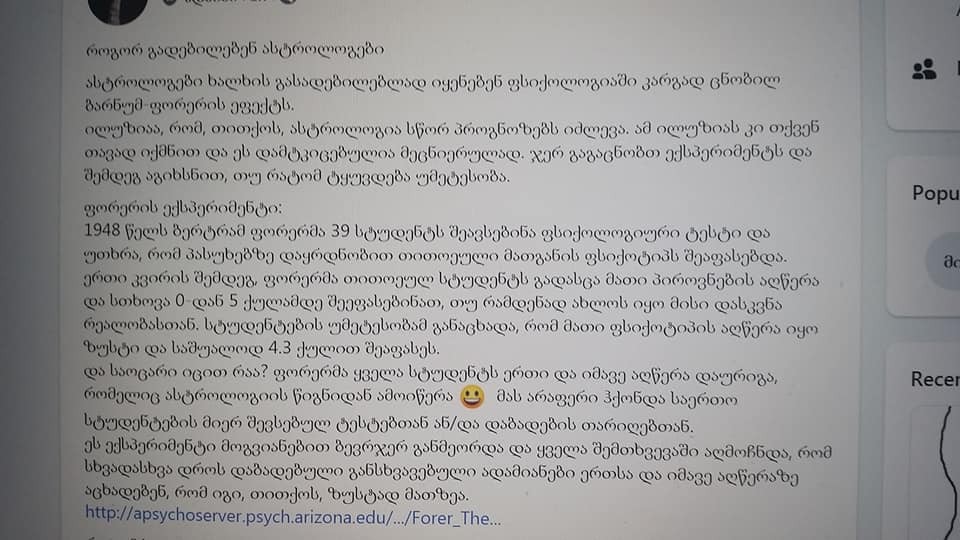 როგორ გადებილებენ ასტროლოგები
ასტროლოგები ხალხის გასადებილებლად იყენებენ ფსიქოლოგიაში კარგად ცნობილ
ბარნუმ-ფორერის ეფექტს.
ილუზიაა, რომ, თითქოს, ასტროლოგია სწორ პროგნოზებს იძლევა. ამ ილუზიას კი თქვენ
თავად იქმნით და ეს დამტკიცებულია მეცნიერულად. ჯერ გაგაცნობთ ექსპერიმენტს და
შემდეგ აგიხსნით, თუ რატომ ტყუვდება უმეტესობა.
ფორერის ექსპერიმენტი:
1948 წელს ბერტრამ ფორერმა 39 სტუდენტს შეავსებინა ფსიქოლოგიური ტესტი და
უთხრა, რომ პასუხებზე დაყრდნობით თითოეული მათგანის ფსიქოტიპს შეაფასებდა.
ერთი კვირის შემდეგ, ფორერმა თითოეულ სტუდენტს გადასცა მათი პიროვნების აღწერა
და სთხოვა 0-დან 5 ქულამდე შეეფასებინათ, თუ რამდენად ახლოს იყო მისი დასკვნა
რეალობასთან. სტუდენტების უმეტესობამ განაცხადა, რომ მათი ფსიქოტიპის აღწერა იყო
ზუსტი და საშუალოდ 4.3 ქულით შეაფასეს.
და საოცარი იცით რაა? ფორერმა ყველა სტუდენტს ერთი და იმავე აღწერა დაურიგა,
რომელიც ასტროლოგიის წიგნიდან ამოიწერა 😀 მას არაფერი ჰქონდა საერთო
სტუდენტების მიერ შევსებულ ტესტებთან ან/და დაბადების თარიღებთან.
ეს ექსპერიმენტი მოგვიანებით ბევრჯერ განმეორდა და ყველა შემთხვევაში აღმოჩნდა, რომ
სხვადასხვა დროს დაბადებული განსხვავებული ადამიანები ერთსა და იმავე აღწერაზე
აცხადებენ, რომ იგი, თითქოს, ზუსტად მათზეა.
http://apsychoserver.psych.arizona.edu/.../Forer_The...
Popu
Recer